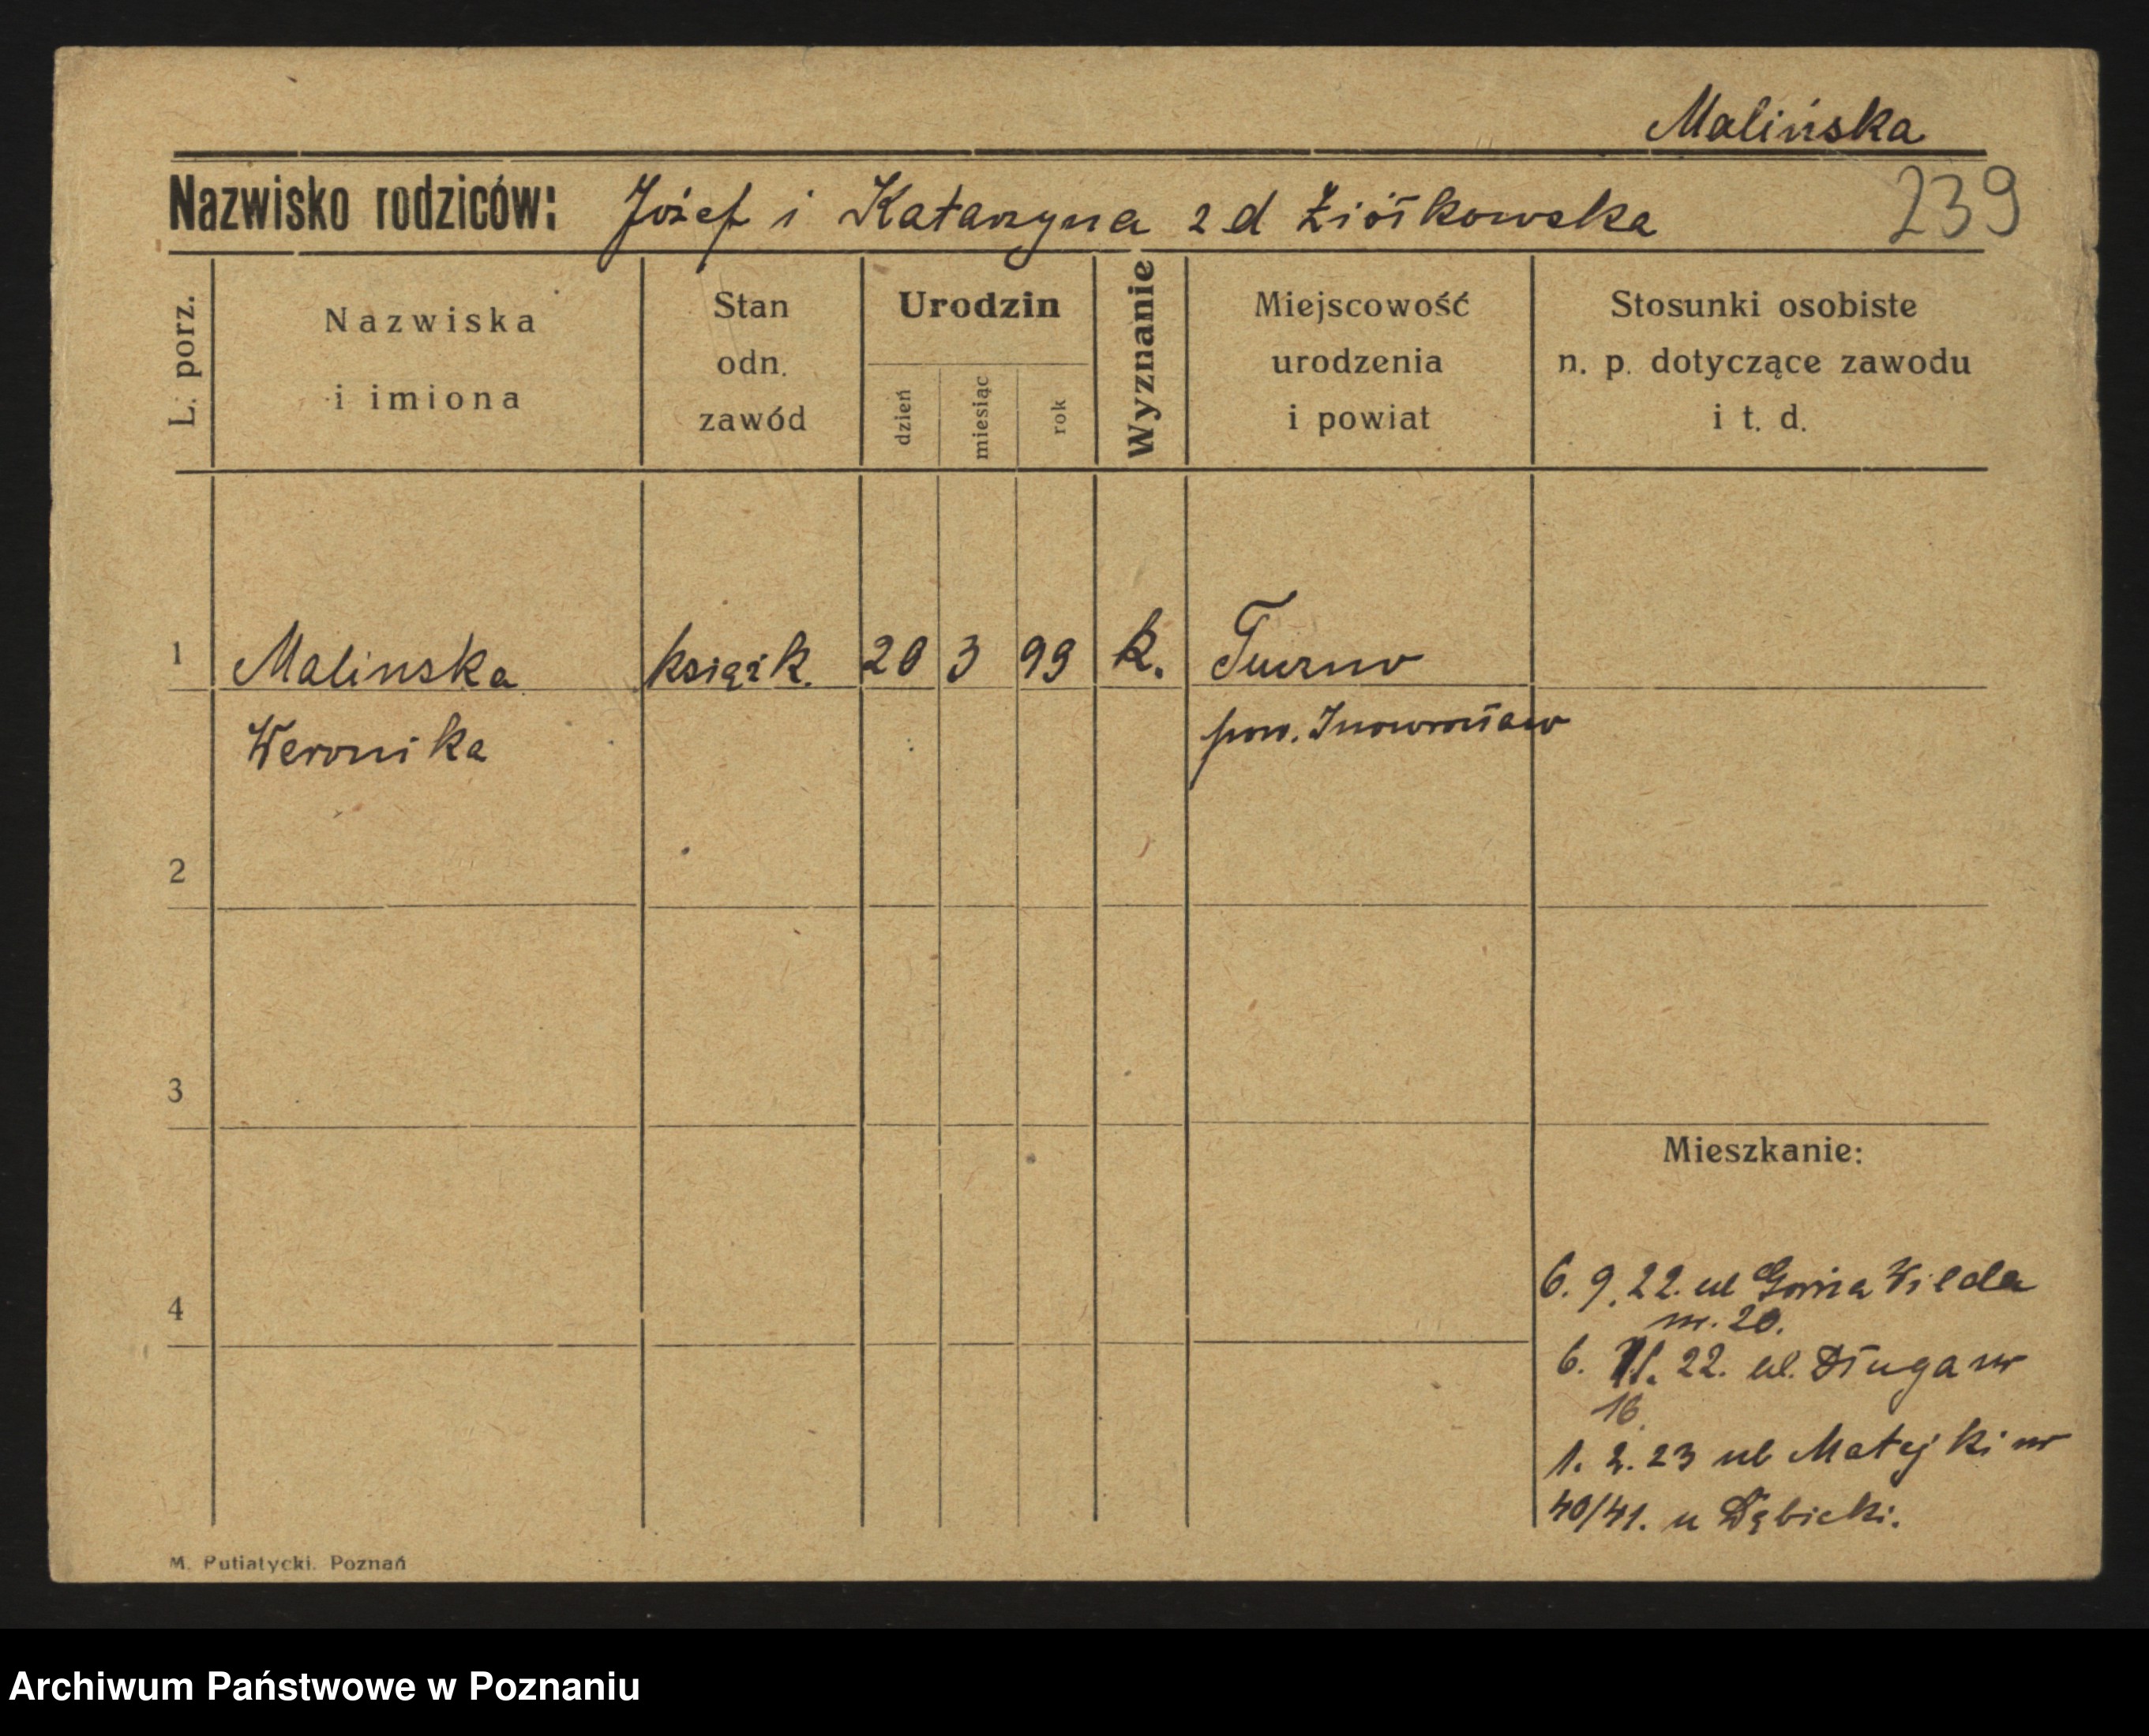 Malińska
Nazwisko rodziców: Józef i Katarzyna z d Ziółkowska 239
L. porz.
Nazwiska i imiona
Stan odn. zawód
Urodzin
dzień
miesiąc
rok
Wyznanie
Miejscowość urodzenia i powiat
Stosunki osobiste n. p. dotyczące zawodu i t. d.
1 Malinska książk. 20 3 99 k. Tuczno
Weronika pow. Inowrocław
2
3
Mieszkanie:
4
6. 9. 22. ul Górna Wilda
nr. 20.
6. 11. 22. ul. Długa nr
16.
1. 2. 23 ul Matejki nr
40/41. u Dębicki.
M. Putiatycki. Poznań
Archiwum Państwowe w Poznaniu